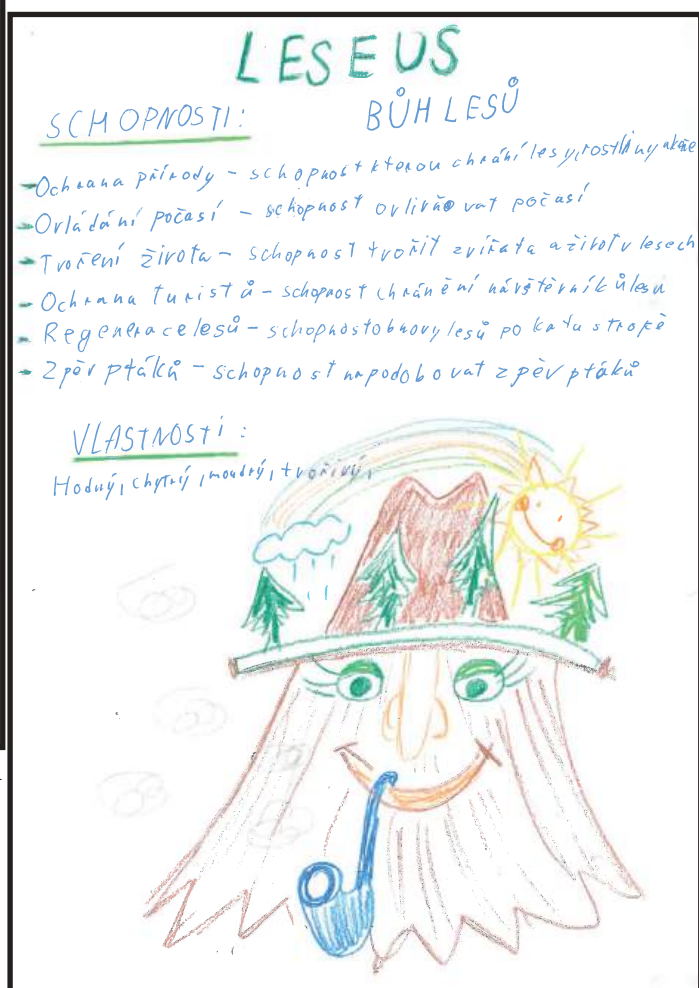 LESEUS
BŮH LESŮ
SCHOPNOSTI:
Ochrana přírody - schopnost kterou chrání lesy, rostliny
Ovládání počasí - schopnost ovlivňovat počasí
Tvoření života - schopnost tvořit zvířata a život v lesech
Ochrana turistů - schopnost chránění návštěvníků lesu
Regenerace lesů - schopnost obnovy lesů po katustropě
Zpěv ptáků - schopnost napodobovat zpěv ptáků
VLASTNOSTI:
Hodný, chytrý, moudrý, tvořivý,